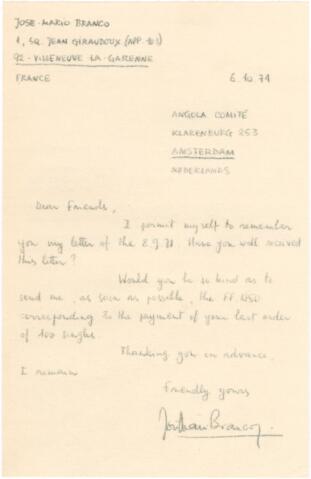 JOSE-MARIO BRANCO
1, SQ. JEAN GIRAUDOUX (APP. 101)
92-VILLENEUVE-LA-GARENNE
FRANCE
6.10.71
ANGOLA COMITÉ
KLARENBURG 253
AMSTERDAM
NEDERLANDS
Dear Friends,
I permit myself to remember
you my letter of the 8.9.71. Have you well received
this letter?
Would you be so kind as to
send me, as soon as possible, the FF
corresponding to the payment of your last order
of 100 singles.
Thanking you in advance,
I remain
Friendly yours